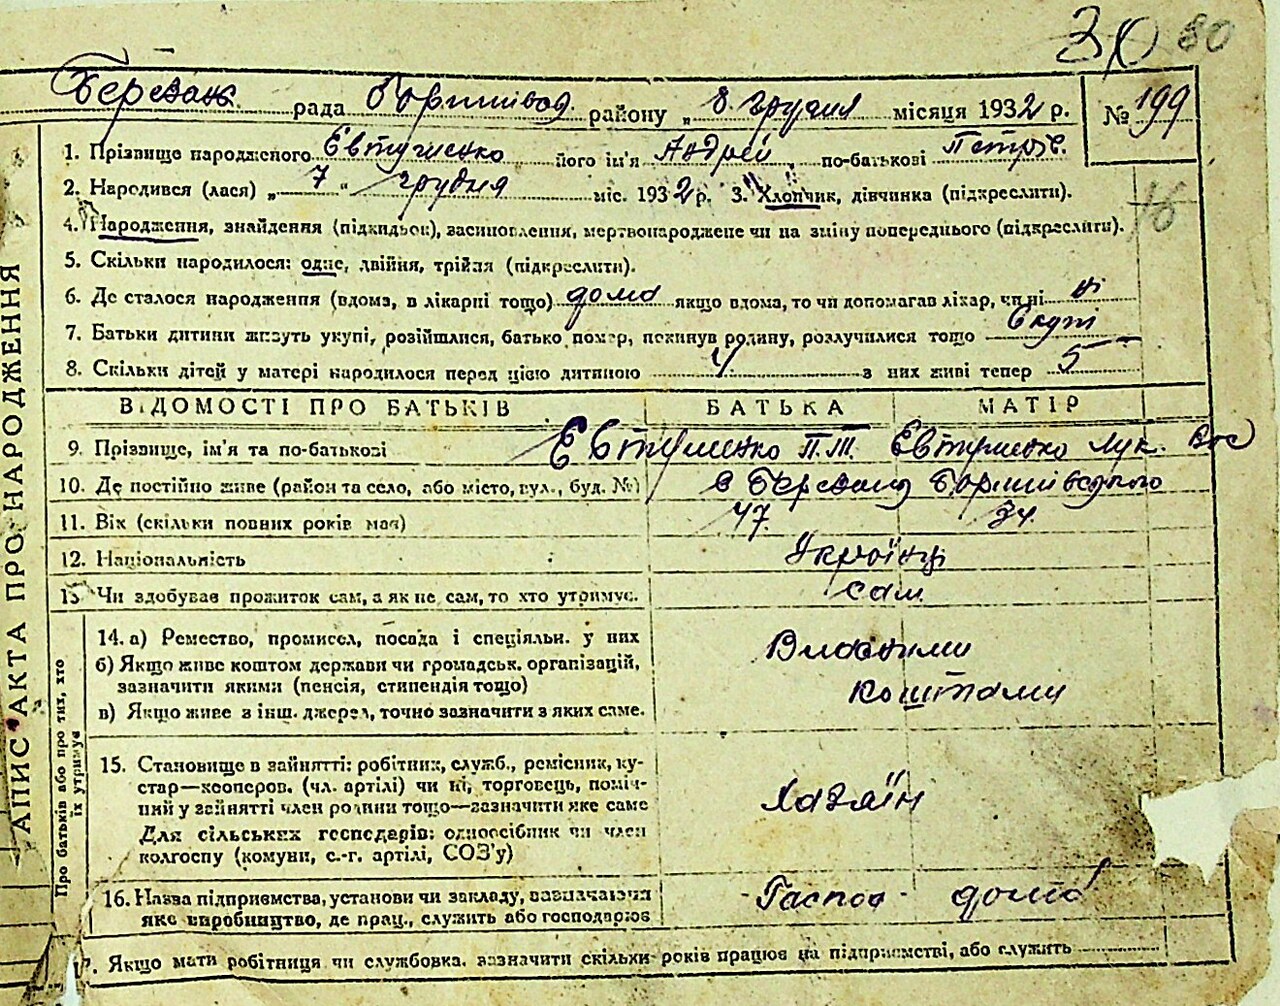 30 80
Березан. рада Баришівсь. району „ 8. грудня місяця 1932 р. № 199
1. Прізвище народженого Євтушенко його ім'я Андрей по-батькові Петров.
2. Народився (лася) „ 7 “ грудня міс. 1932 р. 3. Хлопчик, дівчинка (підкреслити).
16
4. Народження, знайдення (підкидьок), засиновлення, мертвонароджене чи на зміну попереднього (підкреслити).
5. Скільки народилося: одне, двійня, трійня (підкреслити).
6. Де сталося народження (вдома, в лікарні тощо) дома якщо вдома, то чи допомагав лікар, чи ні ні
7. Батьки дитини живуть укупі, розійшлися, батько помер, покинув родину, розлучилися тощо Вкупі
8. Скільки дітей у матері народилося перед цією дитиною 4 з них живі тепер 5
ВІДОМОСТІ ПРО БАТЬКІВ БАТЬКА МАТІР
9. Прізвище, ім'я та по-батькові Євтушенко П. Т. Євтушенко Лук. Вас
10. Де постійно живе (район та село, або місто, вул., буд. №) в Березані Баришівського
11. Вік (скільки повних років має) 47. 34.
12. Національність Українці
13 Чи здобуває прожиток сам, а як не сам, то хто утримує. сам.
14. а) Ремество, промисел, посада і спеціяльн. у них Власними
б) Якщо живе коштом держави чи громадськ. організацій, зазначити якими (пенсія, стипендія тощо) коштами
в) Якщо живе з інш. джерел, точно зазначити з яких саме.
15. Становище в зайнятті: робітник, служб., ремісник, ку-
стар—кооперов. (чл. артілі) чи ні, торговець, поміч-
ний у зайнятті член родини тощо—зазначити яке саме Хазяїн
Для сільських господарів: одноосібник чи член
колгоспу (комуни, с.-г. артілі, СОЗ'у)
16. Назва підприємства, установи чи закладу, зазначаючи - Гаспод - дома
яке виробництво, де прац., служить або господарює
. Якщо мати робітниця чи службовка, зазначити скільки років працює на підприємстві, або служить
АПИС АКТА ПРО НАРОДЖЕННЯ
Про батьків або про тих, хто
їх утримує